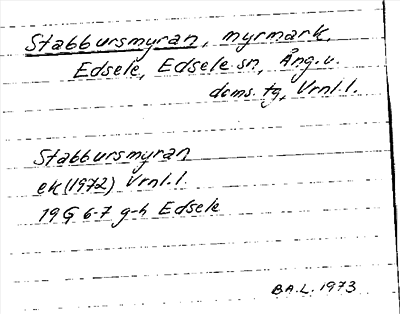 Stabbursmyran, myrmark,
Edsele, Edsele sn, Ång. v.
doms. tg, Vrnl. l.
Stabbursmyran
ek (1972) Vrnl. l.
19G 6-7 g-h Edsele
B.A.L. 1973